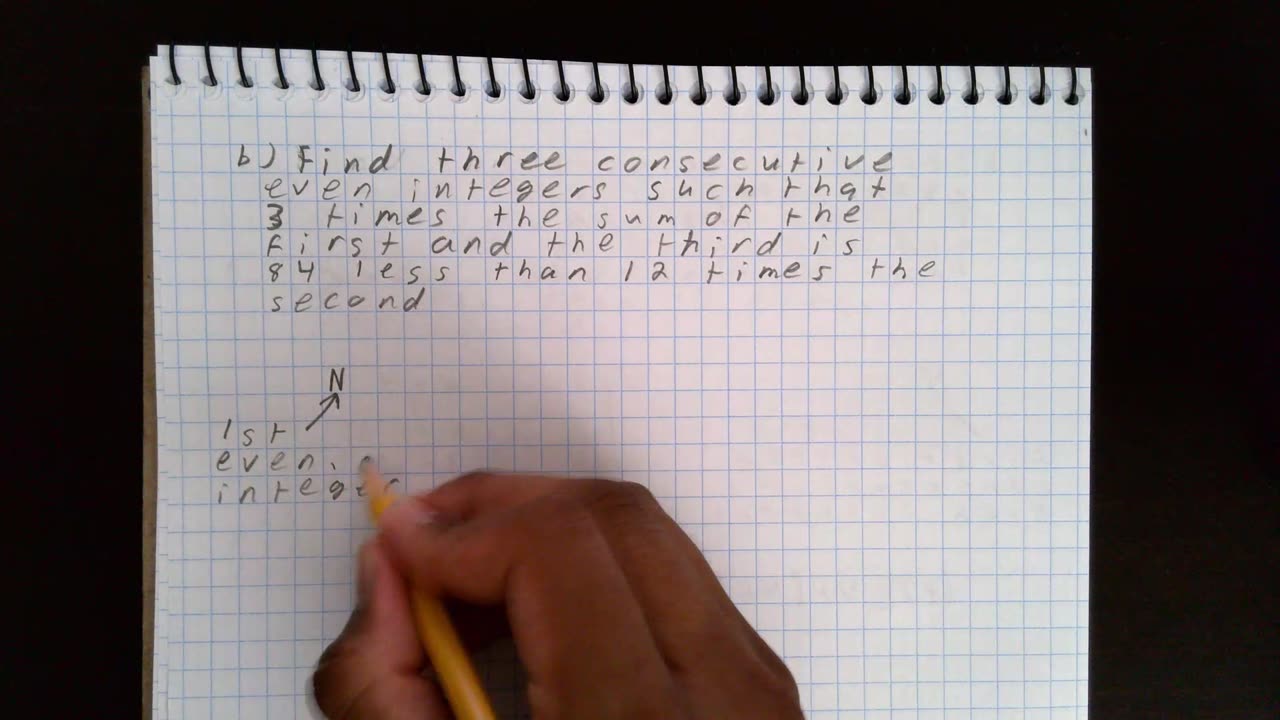 b) Find three consecutive
even integers such that
3 times the sum of the
first and the third is
84 less than 12 times the
second
N
1st
even
integer